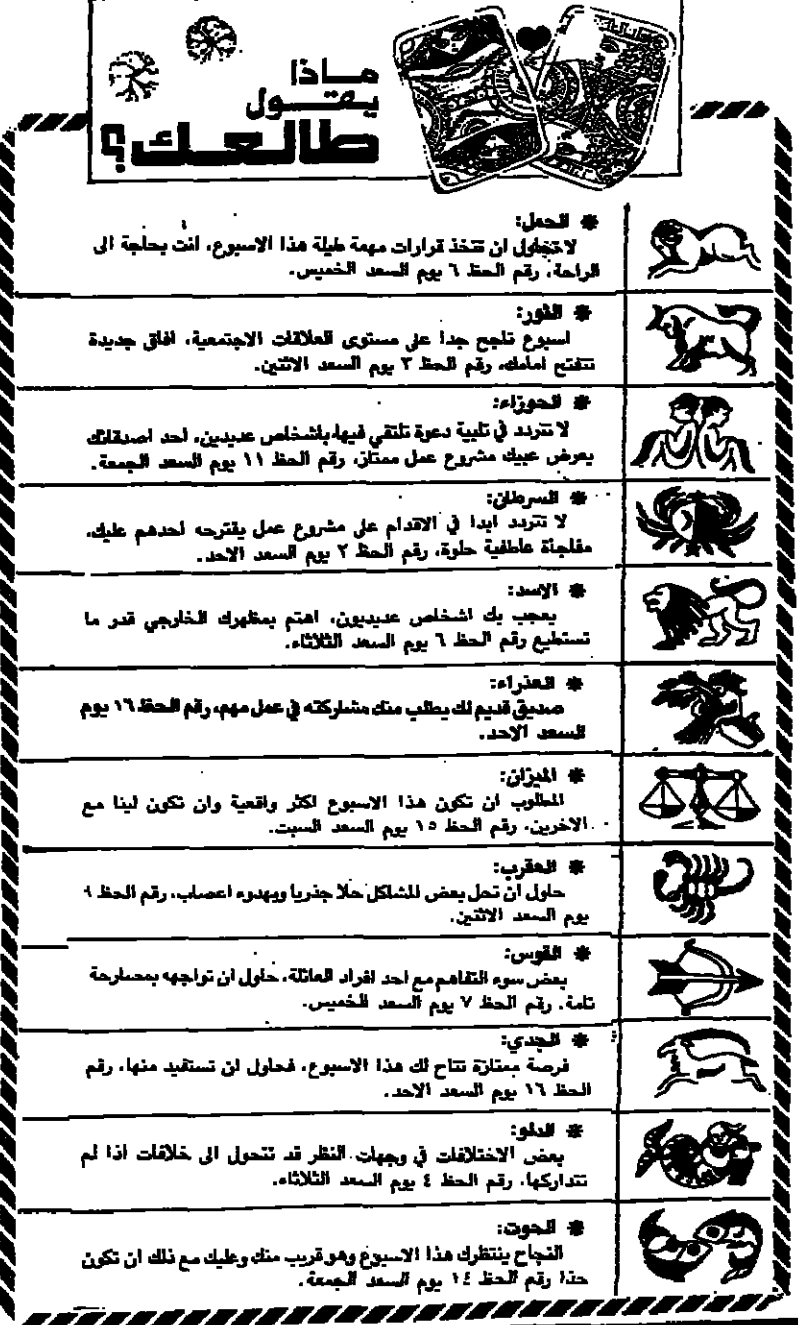 ماذا
يقول
طالعك؟
* الحمل:
لا تحاول ان تتخذ قرارات مهمة طيلة هذا الاسبوع، انت بحاجة الى
الراحة، رقم الحظ ٦ يوم السعد الخميس.
* الثور:
اسبوع ناجح جدا على مستوى العلاقات الاجتمعية، افاق جديدة
تتفتح امامك، رقم الحظ ٣ يوم السعد الاثنين.
* الجوزاء:
لا تتردد في تلبية دعوة تلتقي فيها باشخاص عديدين، احد اصدقائك
يعرض عبيك مشروع عمل ممتاز، رقم الحظ ١١ يوم السعد الجمعة.
* السرطان:
لا تتردد ابدا في الاقدام على مشروع عمل يقترحه احدهم عليك،
مفاجأة عاطفية حلوة، رقم الحظ ٢ يوم السعد الاحد.
* الاسد:
يعجب بك اشخاص عديديون، اهتم بمظهرك الخارجي قدر ما
تستطيع رقم الحظ ٦ يوم السعد الثلاثاء.
* العذراء:
صديق قديم لك يطلب منك مشاركته في عمل مهم، رقم الحظ ١٦ يوم
السعد الاحد.
* الميزان:
المطلوب ان تكون هذا الاسبوع اكثر واقعية وان تكون لينا مع
الاخرين، رقم الحظ ١٥ يوم السعد السبت.
* العقرب:
حاول ان تحل بعض المشاكل حلا جذريا وبهدوء اعصاب، رقم الحظ ٩
يوم السعد الاثنين.
* القوس:
بعض سوء التفاهم مع احد افراد العائلة، حاول ان تواجهه بمصارحة
تامة، رقم الحظ ٧ يوم السعد الخميس.
* الجدي:
فرصة ممتازة تتاح لك هذا الاسبوع، فحاول ان تستفيد منها، رقم
الحظ ١٦ يوم السعد الاحد.
* الدلو:
بعض الاختلافات في وجهات النظر قد تتحول الى خلافات اذا لم
تتداركها، رقم الحظ ٤ يوم السعد الثلاثاء.
* الحوت:
النجاح ينتظرك هذا الاسبوع وهو قريب منك وعليك مع ذلك ان تكون
حذا رقم الحظ ١٤ يوم السعد الجمعة.